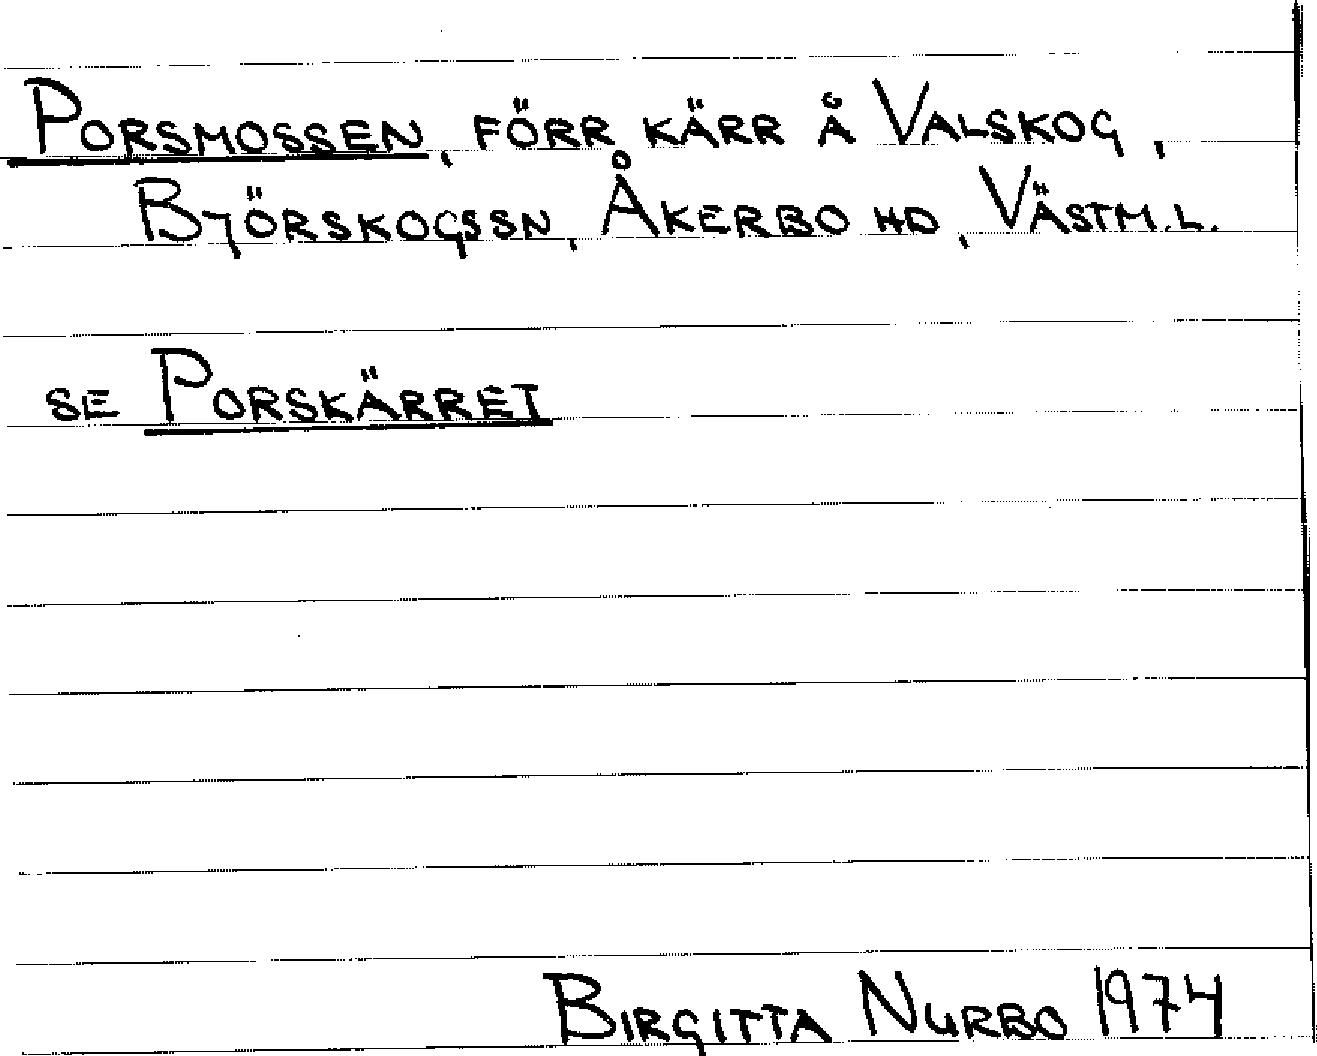 PORSMOSSEN, FÖRR KÄRR Å VALSKOG,
BJÖRSKOGSSN, ÅKERBO HD, VÄSTM.L.
SE PORSKÄRRET
BIRGITTA NURBO 1974